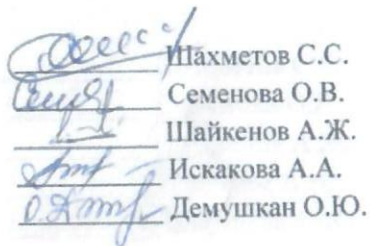 Шахметов С.С.
Семенова О.В.
Шайкенов А.Ж.
Искакова А.А.
Демушкан О.Ю.